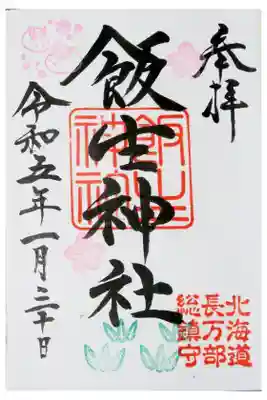 奉拝
北海道
長万部
総鎮守
飯生神社
飯生
神社
令和五年一月三十日